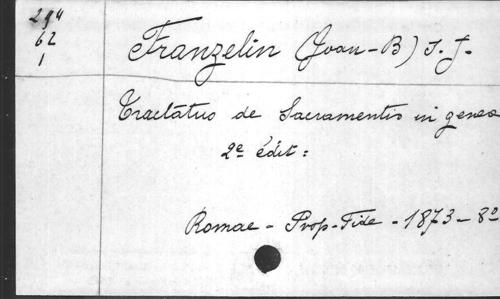 294
62
1
Franzelin (Joan-B) S. J.
Tractatus de Sacramentis in genea
2e édit:
Romae - Prop-Fide - 1873 - 8o